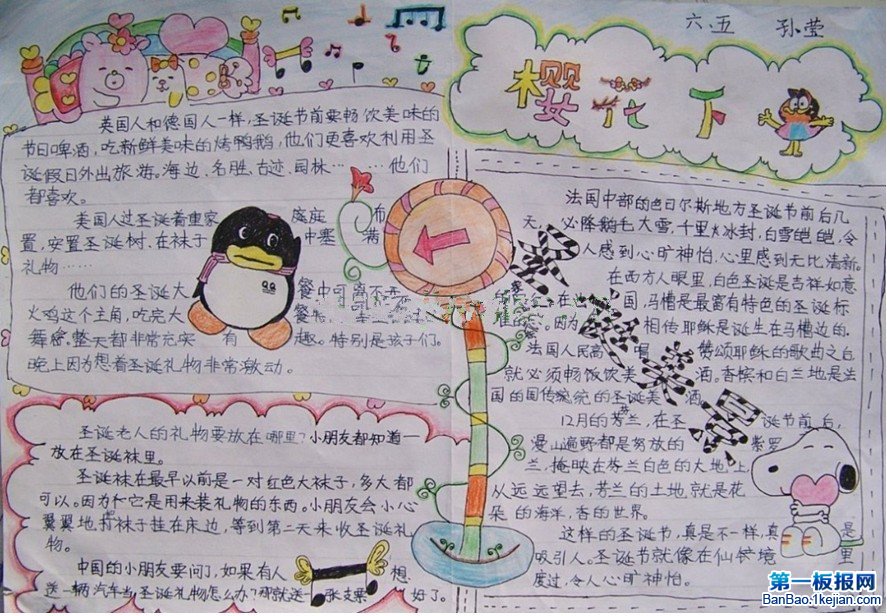 六、五 孙莹
樱花下
英国人和德国人一样,圣诞节前要畅饮美味的
节日啤酒,吃新鲜美味的烤鸭鹅,他们更喜欢利用圣
诞假日外出旅游。海边、名胜、古迹、园林…… 他们
都喜欢。
美国人过圣诞着重家庭庭布
置,安置圣诞树,在袜子中塞满
礼物……
他们的圣诞大餐中可
火鸡这个主角,吃完大餐
舞会。整天都非常充实有趣。特别是孩子们。
晚上因为想着圣诞礼物非常激动。
圣诞老人的礼物要放在哪里?小朋友都知道一
放在圣诞袜里。
圣诞袜在最早以前是一对红色大袜子,多大都
可以。因为它是用来装礼物的东西。小朋友会小心
翼翼地将袜子挂在床边,等到第二天来收圣诞礼
物。
中国的小朋友要问了,如果有人想
送一辆汽车当圣诞礼物怎么办?那就送张支票好了。
法国中部的色日尔斯地方圣诞节前后几
天,必降鹅毛大雪,千里冰封,白雪皑皑,令
人感到心旷神怡,心里感到无比清新。
在西方人眼里,白色圣诞是吉祥如意
在国,马槽是最富有特色的圣诞标
准的。因为相传耶稣是诞生在马槽边的.
法国人民高唱赞颂耶稣的歌曲之后
就必须畅饭饮美酒,香槟和白兰地是法
国的国传统的圣诞美酒
12月的芬兰,在圣诞节前后,
漫山遍野都是努放的紫罗
兰,掩映在芬兰白色的大地上
从远远望去,芬兰的土地就是花
朵的海洋,香的世界。
这样的圣诞节,真是不一样,真是
吸引人。圣诞节就像在仙镜境里
度过,令人心旷神怡。
第一板报网
BanBao.1kejian.com